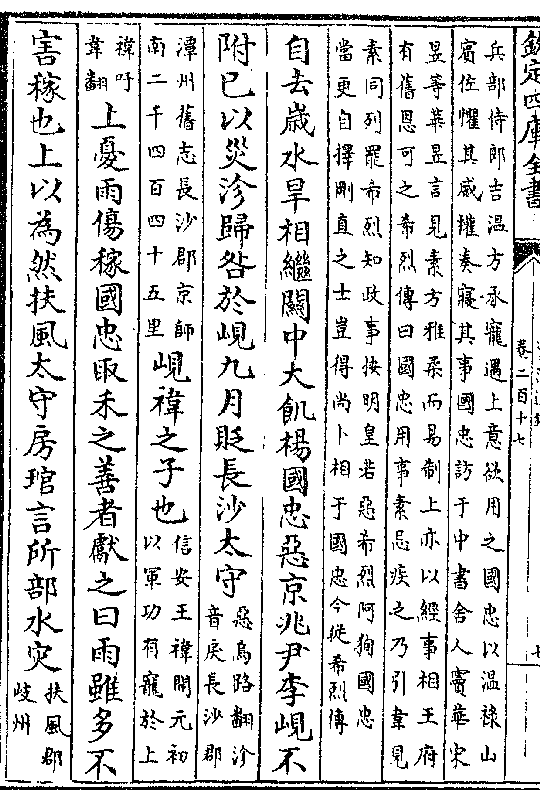 欽定四庫全書
卷二百十七
兵部侍郎吉溫方承寵遇上意欲用之國忠以溫祿山
賓佐懼其威權奏寢其事國忠訪于中書舍人竇華宋
昱等華昱言見素方雅柔而易制上亦以經事相王府
有舊恩可之希烈傳曰國忠用事素忌疾之乃引韋見
素同列罷希烈知政事按明皇若惡希烈阿狥國忠
當更自擇剛直之士豈得尚卜相于國忠今從希烈傳
自去歳水旱相繼關中大飢楊國忠惡京兆尹李峴不
附已以災沴歸咎於峴九月貶長沙太守
惡烏路翻沴
音戾長沙郡
潭州舊志長沙郡京師
南二千四百四十五里
峴禕之子也
信安王禕開元初
以軍功有寵於上
禕吁
韋翻
上憂雨傷稼國忠取禾之善者獻之曰雨雖多不
害稼也上以為然扶風太守房琯言所部水灾
扶風郡
岐州